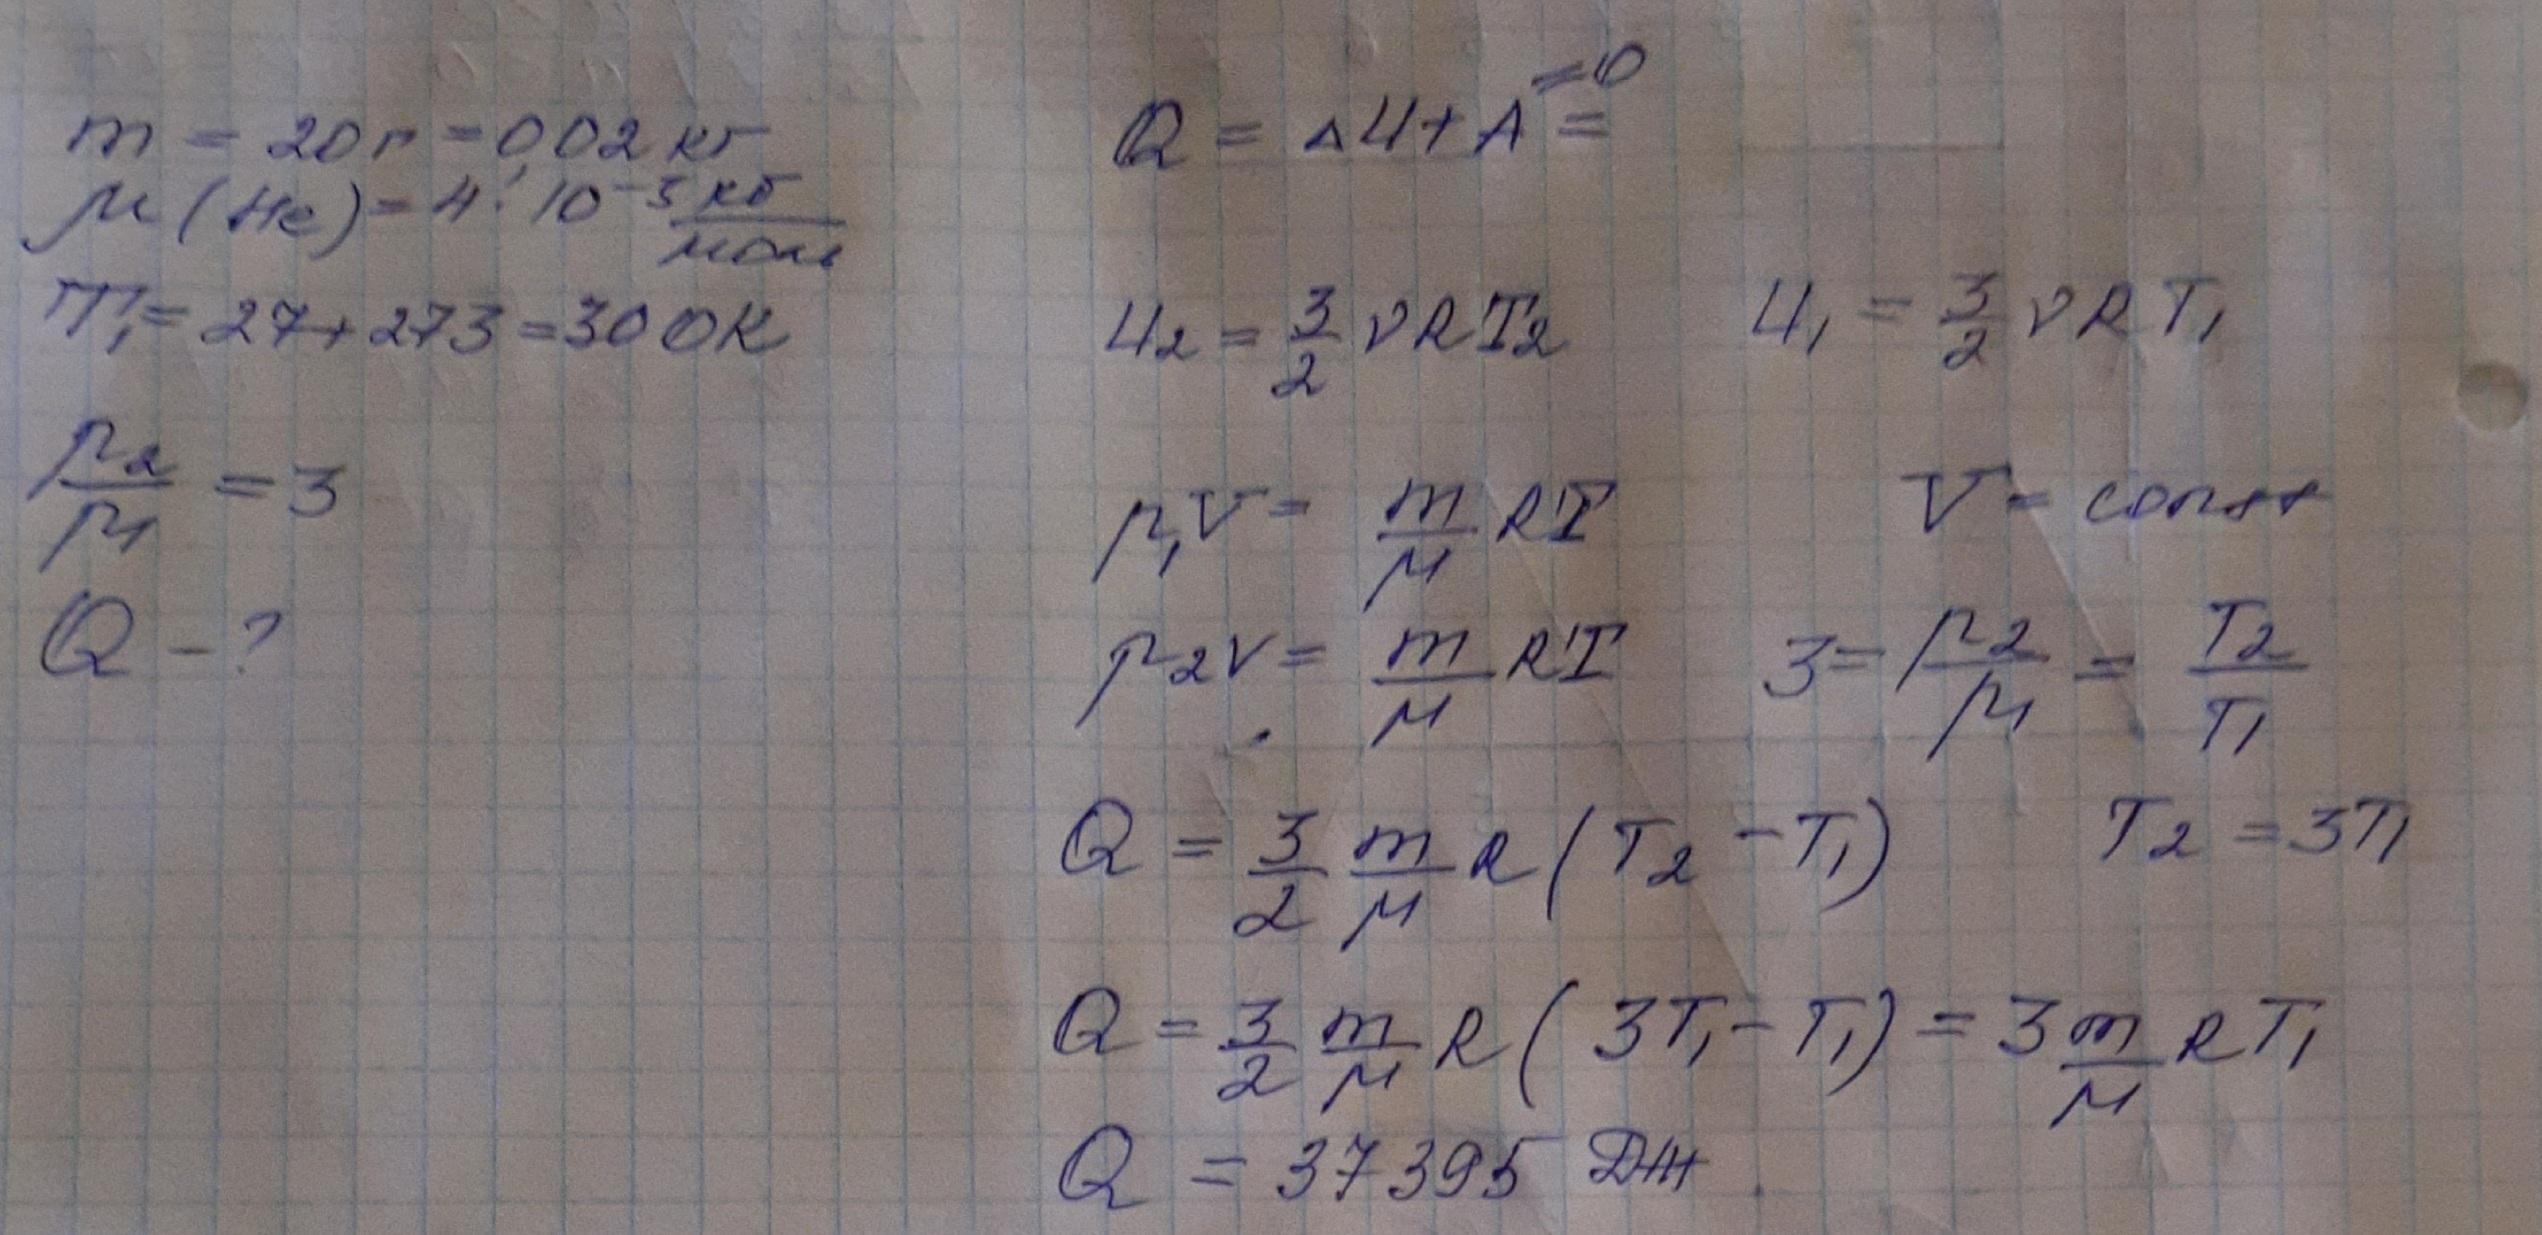 m = 20 г = 0,02 кг
μ (He) = 4 · 10⁻³ кг/моль
T₁ = 27 + 273 = 300 К
p₂/p₁ = 3
Q - ?
Q = ΔU + A = 0 =
U₂ = 3/2 ν R T₂ U₁ = 3/2 ν R T₁
p₁V = m/μ RT V = const
p₂V = m/μ RT 3 = p₂/p₁ = T₂/T₁
Q = 3/2 m/μ R (T₂ - T₁) T₂ = 3T₁
Q = 3/2 m/μ R (3T₁ - T₁) = 3 m/μ RT₁
Q = 37395 Дж